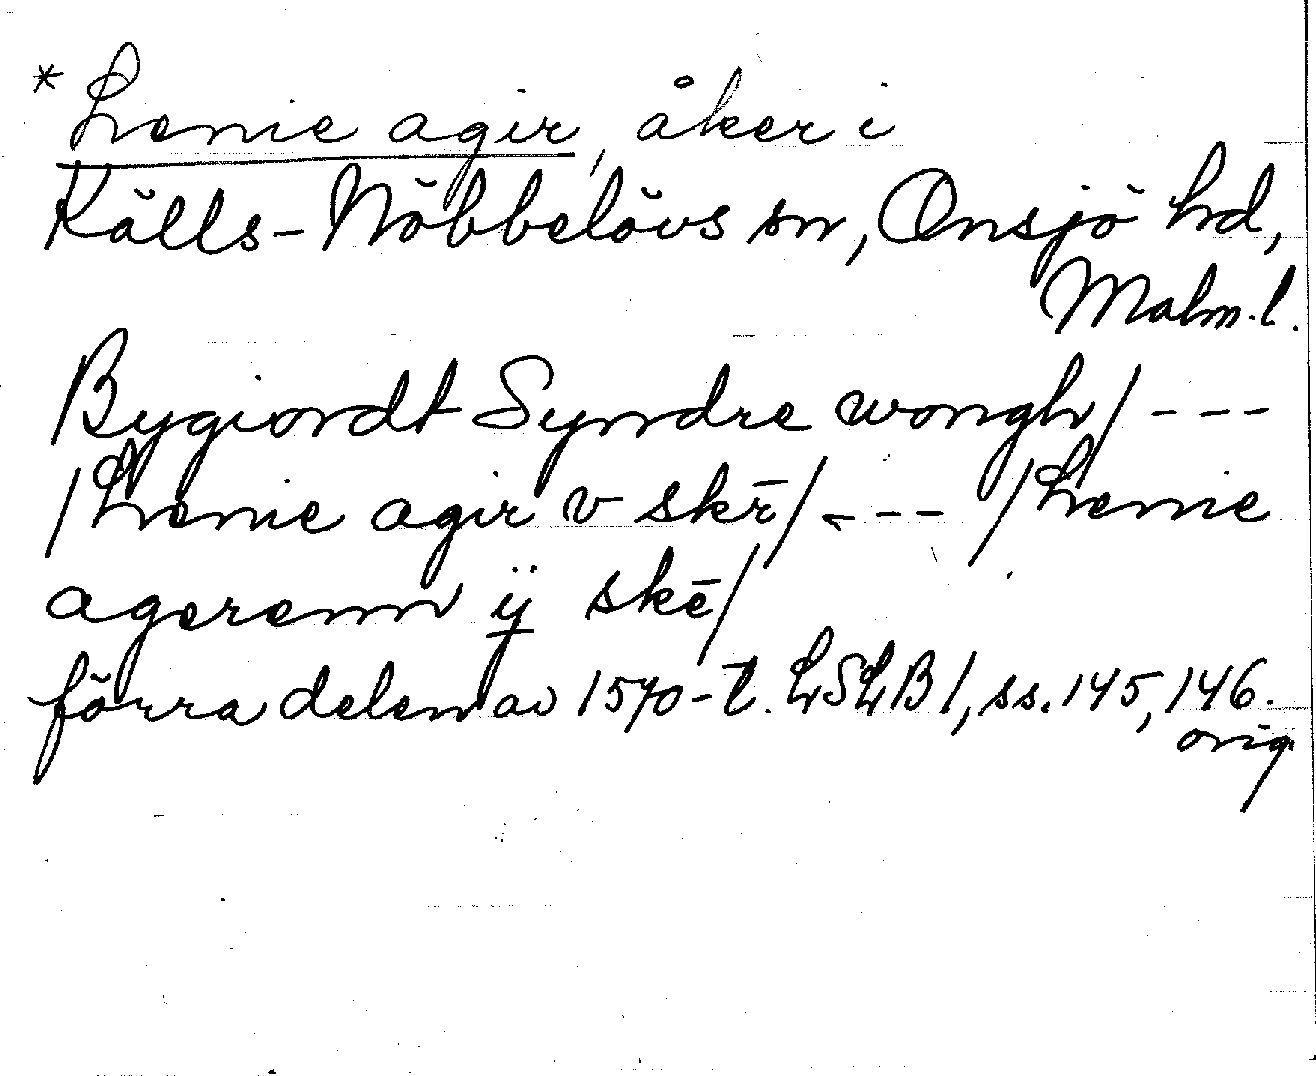 *Lenie agir, åker i
Källs-Nöbbelövs sn, Onsjö hd,
Malm.l.
Bygiordt Syndre wongh/ ---
/Lenie agir v skē/ --- /Lenie
agerenn ij skē/
förra delen av 1570-t. LSLB 1, ss. 145, 146.
orig